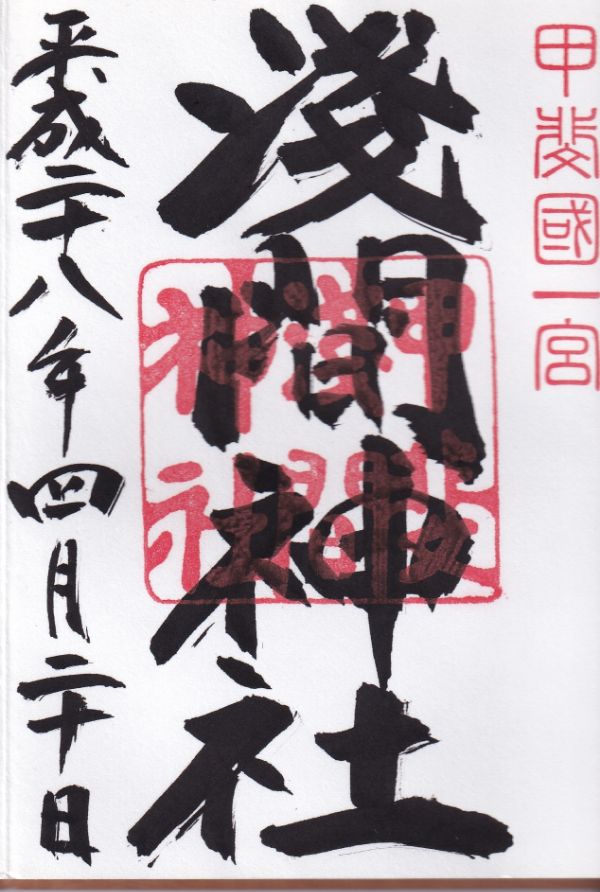 甲斐國一宮
淺間神社
平成二十八年四月二十日